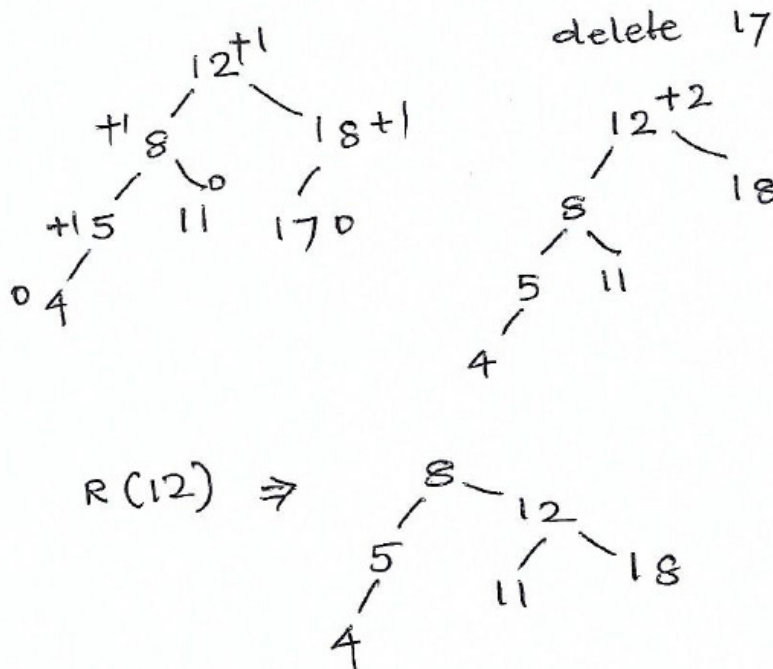 delete 17
12 +1
+1 8 18 +1
+1 5 11 0 17 0
0 4
12 +2
8 18
5 11
4
R(12) ⇒
8
12
5
11 18
4